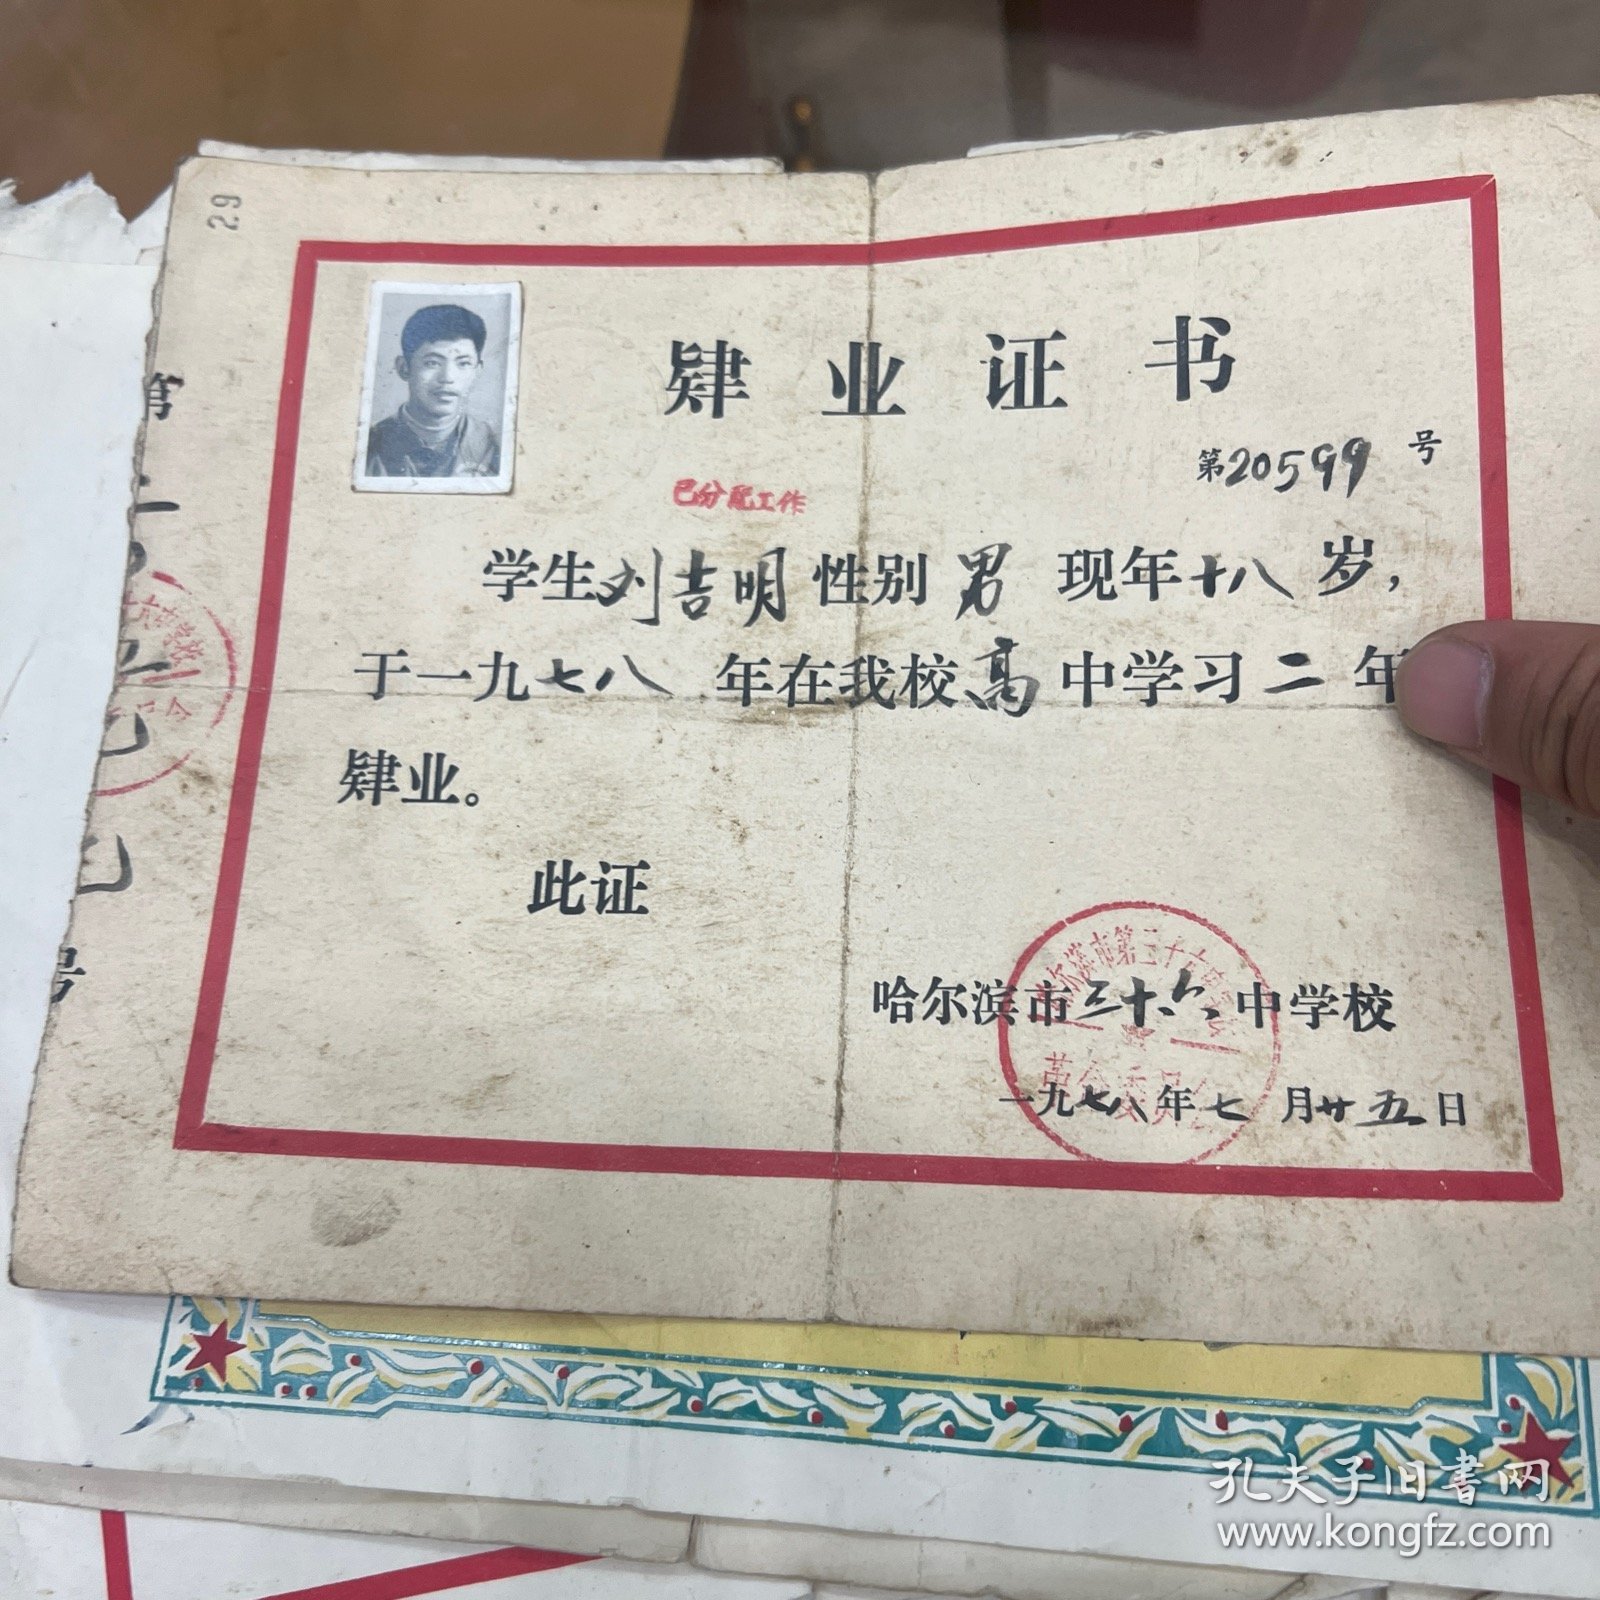 29
肄业证书
第20599号
已分配工作
学生刘吉明性别男 现年十八岁，
于一九七八年在我校高中学习二年
肄业。
此证
哈尔滨市三十六中学校
一九七八年七月廿五日
哈尔滨市第三十六中学校
革命委员会
第
号
孔夫子旧书网
www.kongfz.com